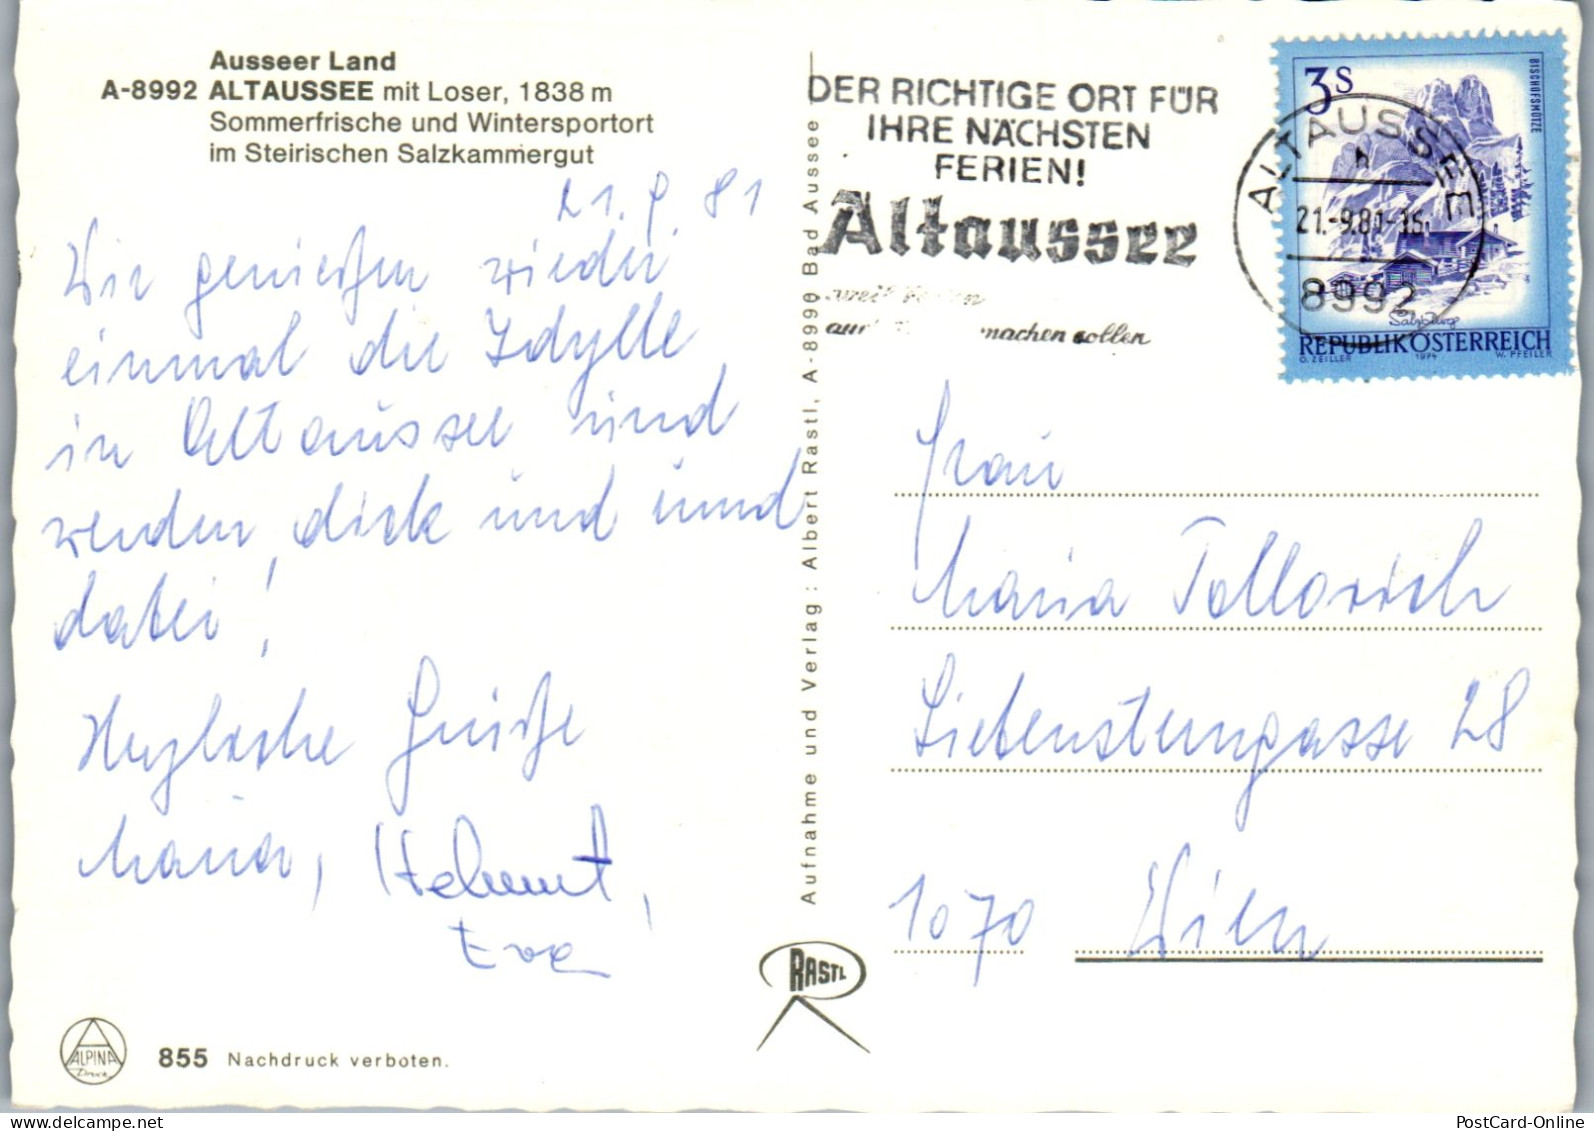 Ausseer Land
A-8992 ALTAUSSEE mit Loser, 1838 m
Sommerfrische und Wintersportort
im Steirischen Salzkammergut
21. 9 81
Wir genießen wieder
einmal die Idylle
in Altaussee und
werden dick und rund
dabei!
Herzliche Grüße
Maria, Helmut,
Eva
855 Nachdruck verboten.
ALPINA
Druck
Aufnahme und Verlag : Albert Rastl, A-8990 Bad Aussee
RASTL
DER RICHTIGE ORT FÜR
IHRE NÄCHSTEN
FERIEN!
Altaussee
machen sollen
ALTAUSSEE
A
21.-9.81-15
8992
3S
BISCHOFSMÜTZE
Salzburg
REPUBLIK ÖSTERREICH
O. ZEILLER 1974 W. PFEILER
Frau
Maria Tollovich
Siebensterngasse 28
1070 Wien
PostCard-Online